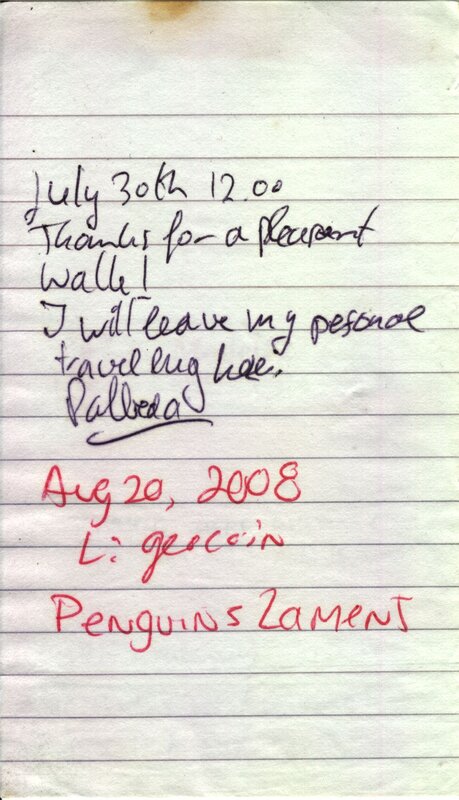 July 30th 12.00
Thanks for a pleasant
walk!
I will leave my pesonal
travel bug here.
Palleda
Aug 20, 2008
L: geocoin
Penguins Lament